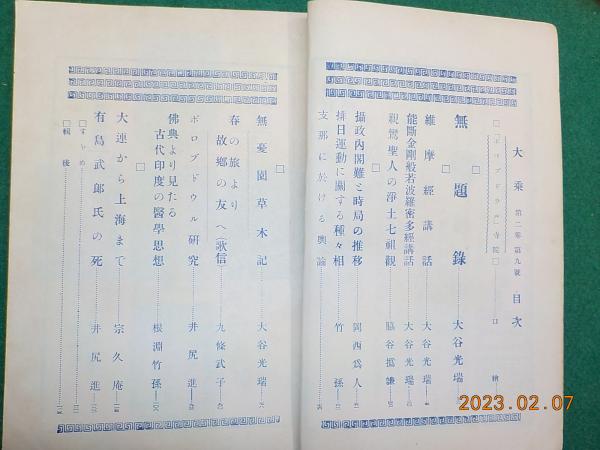 大乘 第二卷 第九號 目次
□「ボロブドウル」寺院□……口繪
無題錄……大谷光瑞
維摩經講話……大谷光瑞
能斷金剛般若波羅密多經講話……大谷光瑞
親鸞聖人の淨土七祖觀……脇谷撝謙
攝政內閣難と時局の推移……關西爲人
排日運動に關する種々相……竹孫
支那に於ける輿論
無憂園草木記……大谷光瑞
春の旅より
故鄉の友へ(歌信)……九條武子
ボロブドウル硏究……井尻進
佛典より見たる
古代印度の醫學思想……根淵竹孫
大連から上海まで……宗久庵
有島武郞氏の死……井尻進
□すゝめ
□輯後
2023.02.07